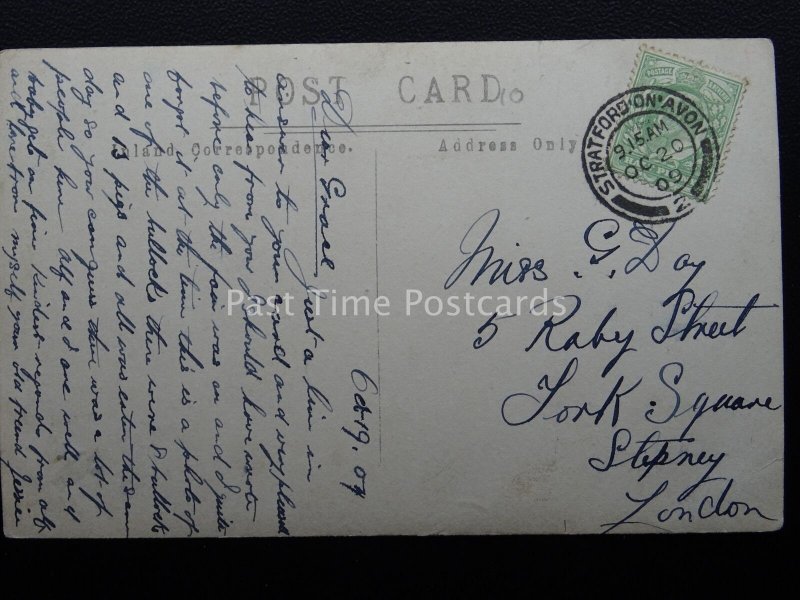 POST CARD
Inland Correspondence.
Address Only
STRATFORD ON AVON
9.15 AM
OC 20
09
POSTAGE
Past Time Postcards
Miss. G. Day
5 Raby Street
York Square
Stepney
London
Oct 19. 09
Dear Grace Just a line in
answer to your card and very pleased
to hear from you I should have wrote
before only the fair was on and I quite
forgot it at the time this is a photo of
one of the bullocks there were 8 bullocks
and 13 pigs and all was eaten the same
day so you can guess there was a lot of
people here Alf and I are well and
baby gets on fine kindest regards from Alf
and love from myself your old friend Jessie